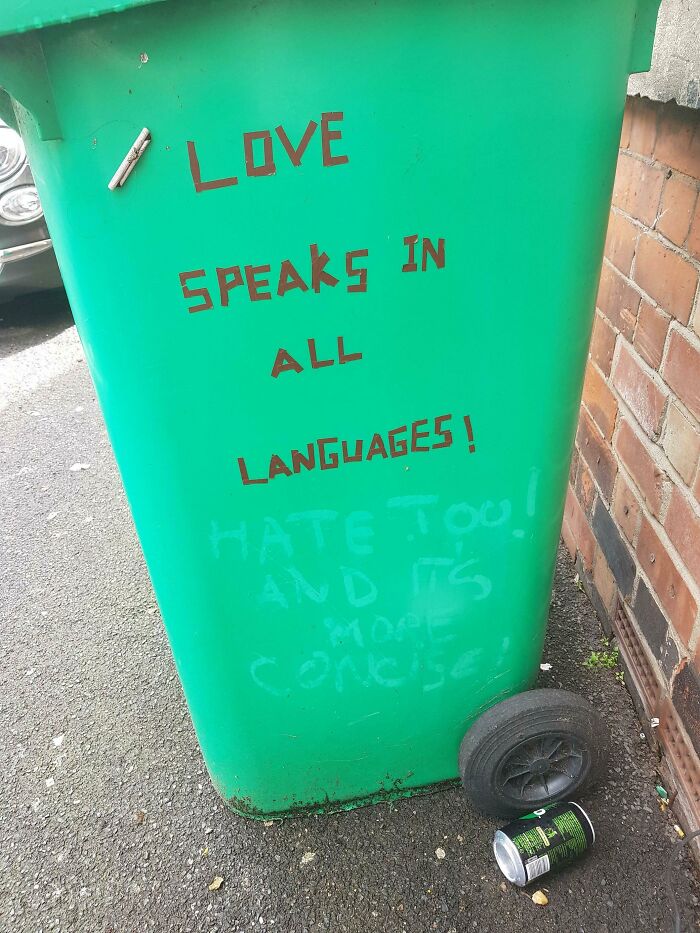 LOVE
SPEAKS IN
ALL
LANGUAGES!
HATE TOO!
AND ITS
MORE
CONCISE!